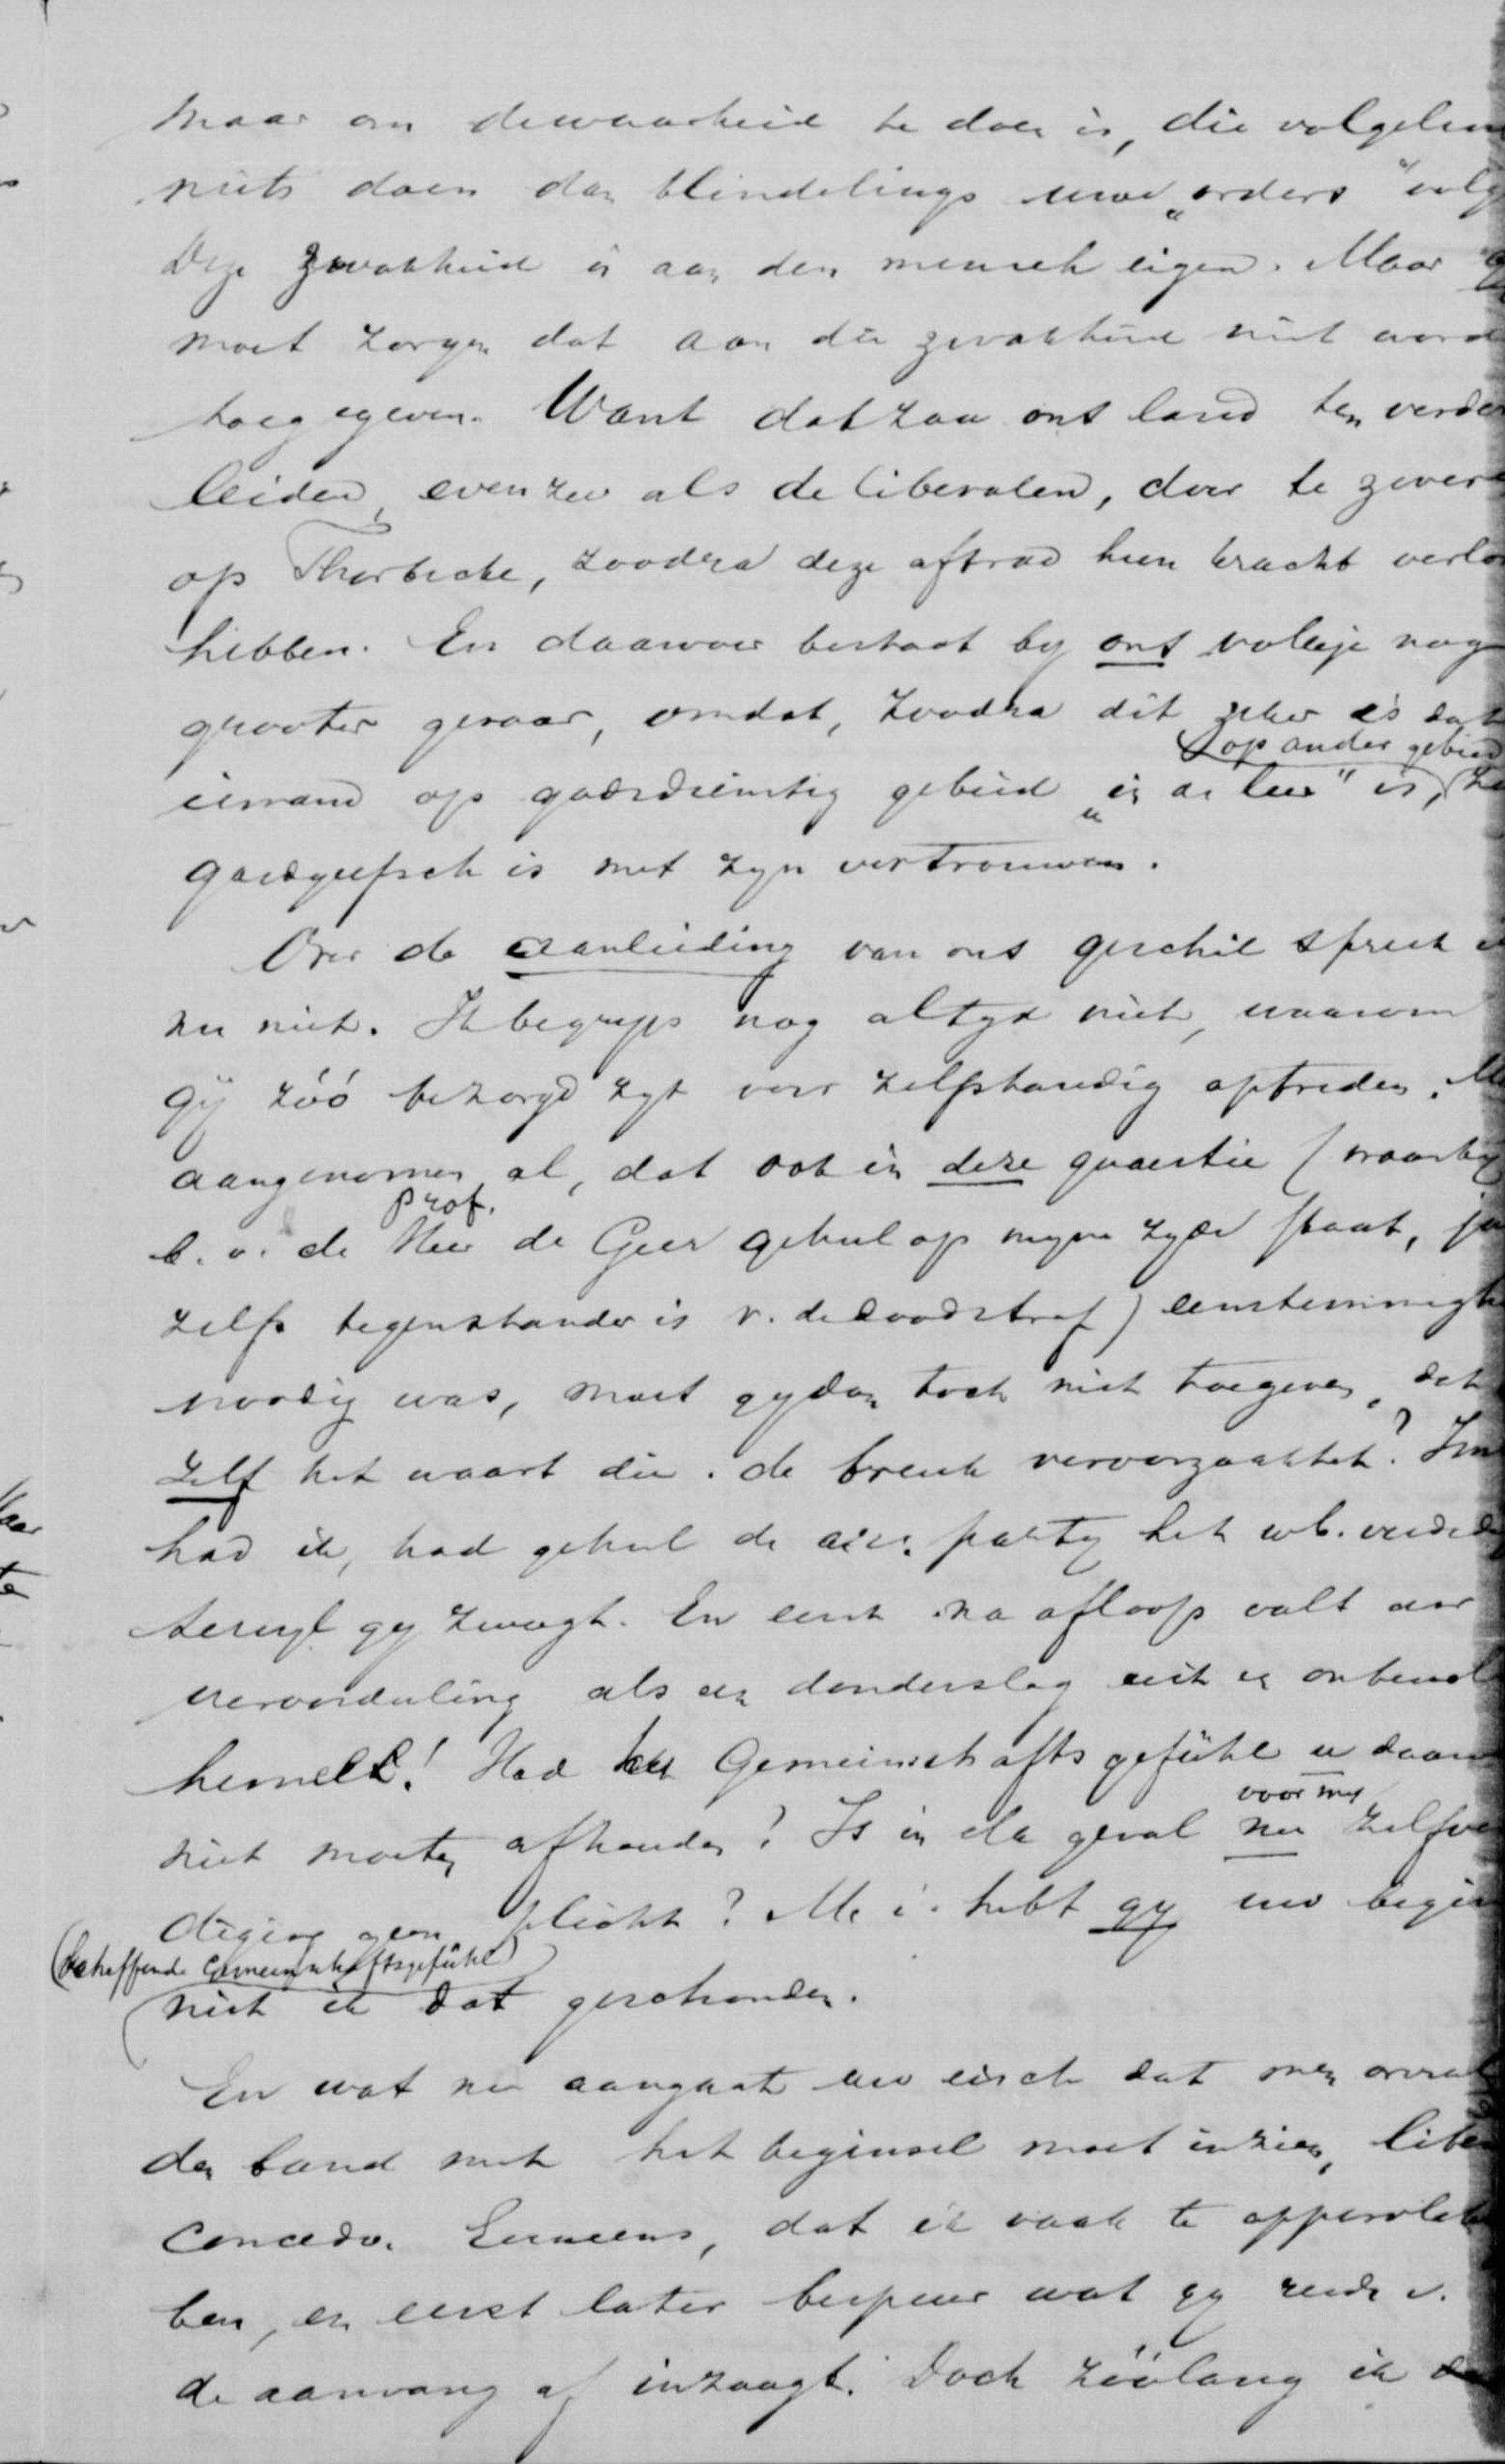 maar om de waarheid te doen is, die volgelin
niets doen dan blindelings uwe „orders" volg
Deze zwakheid is aan den mensch eigen. Maar
moet zorgen dat aan die zwakheid niet word
toegegeven. Want dat zou ons land ten verder
leiden, evenzeer als de liberalen, door te zweren
op Thorbecke, zoodra deze aftrad hun kracht verlo
hebben. En daarvoor bestaat by ons volkje nog
grooter gevaar, omdat, zoodra dit zeker is dat
op ander gebied
iemand op godsdienstig gebied „in de leer" is,
goedgeefsch is met zyn vertrouwen.
Over de aanleiding van ons geschil spreek
nu niet. Ik begryp nog altyd niet, waarom
gij zóó bezorgd zyt voor zelfstandig optreden.
aangenomen al, dat ook in deze quaestie (waarby
prof.
b.v. de Heer de Geer geheel op myne zyde staat, ja
zelfs tegenstander is v. de doodstraf) eenstemmigh
noodig was, moet gy dan toch niet toegeven, dat
zelf het waart die de breuk veroorzaaktet?
had ik, had geheel de a.r. party het w.b. verded
terwyl gy zweegt. En eerst na afloop valt uw
veroordeeling als een donderslag uit een onbewol
hemel! Had het Gemeinschaftsgefühl u daarv
voor my
niet moeten afhouden? Is in elk geval nu zelfve
diging geen plicht? M. i. hebt gy uw begin
(betreffende Gemeinschaftsgefühl)
niet ik dat geschonden.
En wat nu aangaat uw eisch dat men overal
den band met het beginsel moet inzien, libe
concedo. Eveneens, dat ik vaak te oppervlak
ben, en eerst later bespeur wat gy reeds v.
de aanvang af inzaagt. Doch zóólang ik